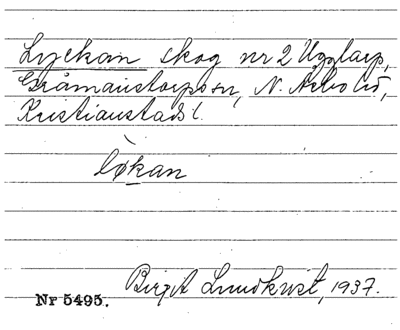 Lyckan skog nr 2 Ugglarp,
Gråmanstorps sn, N. Åsbo hd,
Kristianstads l.
`løkan
Birgit Lundkvist, 1937.
Nr 5495.